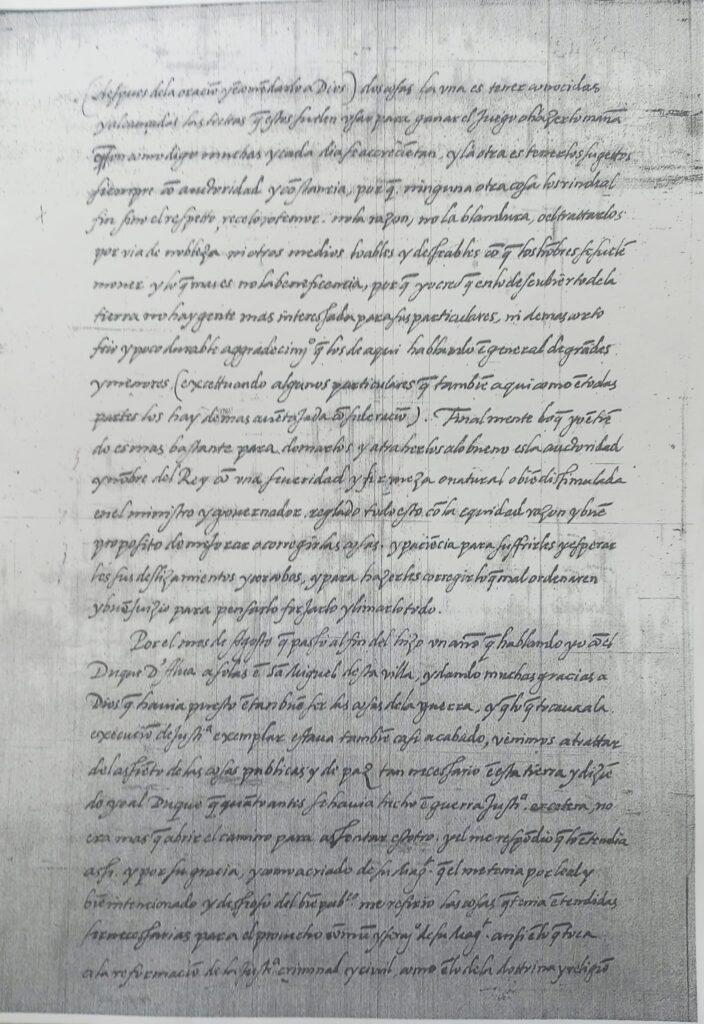 (despues de la oracio͞ y eͤcome͞darlo a Dios) dos cosas la vna es tener conocidas
y alcançadas las tretas q̃ estos suelen vsar para ganar el Juego o hazerlo maña
q̃ son como digo muchas y cada dia se acrecie͞tan, y la otra es tener los sugettos
siempre cõ auctoridad y cõstancia, por q̃ ninguna otra cosa los rinde al
fin sino el respetto, recelo o temor. no la razon, no la blandura, o el trattarlos
por via de nobleza ni otros medios loables y desseables cõ q̃ los hõbres se suelẽ
mouer y lo q̃ mas es no la beneficencia, por q̃ yo creo q̃ en lo descubierto de la
tierra no hay gente mas interessada para sus particulares, ni de mas corto
frio y poco durable aggradecimᵒ q̃ los de aqui hablando ẽ general de grãdes
y menores (excettuando algunos particulares q̃ tambiẽ aqui como ẽ todas
partes los hay de mas auẽtajada cõsideraciõ). Finalmente lo q̃ yo ẽtiẽ
do es mas bastante para domarlos y atraherlos a lo bueno es la auctoridad
y nõbre del Rey cõ vna seueridad y firmeza o natural o biẽ dissimulada
en el ministro y gouernador. reglado todo esto cõ la equidad razon y buẽ
proposito de mejorar o corregir las cosas. y paciẽcia para suffrirles y esperar
les sus deslizamientos y corcobos, y para hazerles corregir lo q̃ mal ordenaren
y buẽ juizio para pensarlo forjarlo y limarlo todo.
Por el mes de Agosto q̃ passó al fin del hizo vn año q̃ hablando yo cõ el
Duque D'Alua a solas ẽ Sã Miguel desta villa, y dando muchas gracias a
Dios q̃ hauia puesto ẽ tan buẽ ser las cosas de la guerra, y q̃ lo q̃ tocaua a la
execuciõ de Justiᵃ exemplar estaua tambiẽ casi acabado, venimos a trattar
del assiẽto de las cosas publicas y de paz tan necessario ẽ esta tierra y diziẽ
do yo al Duque q̃ quãto antes se hauia hecho ẽ guerra Justiᵃ. etcetera, no
era mas q̃ abrir el camino para assentar estotro. y el me respõdio q̃ lo ẽtendia
assi. y por su gracia, y como a criado de su Magᵈ. q̃ el me tenia por leal y
biẽ intencionado y desseoso del biẽ pubᶜᵒ. me refirio las cosas q̃ tenia ẽtendidas
ser necessarias para el prouecho comũ y seruᵒ de su Magᵈ. ansi ẽ lo q̃ toca
a la reformaciõ de la Justiᵃ criminal y ciuil, como ẽ lo de la dottrina y religiõ